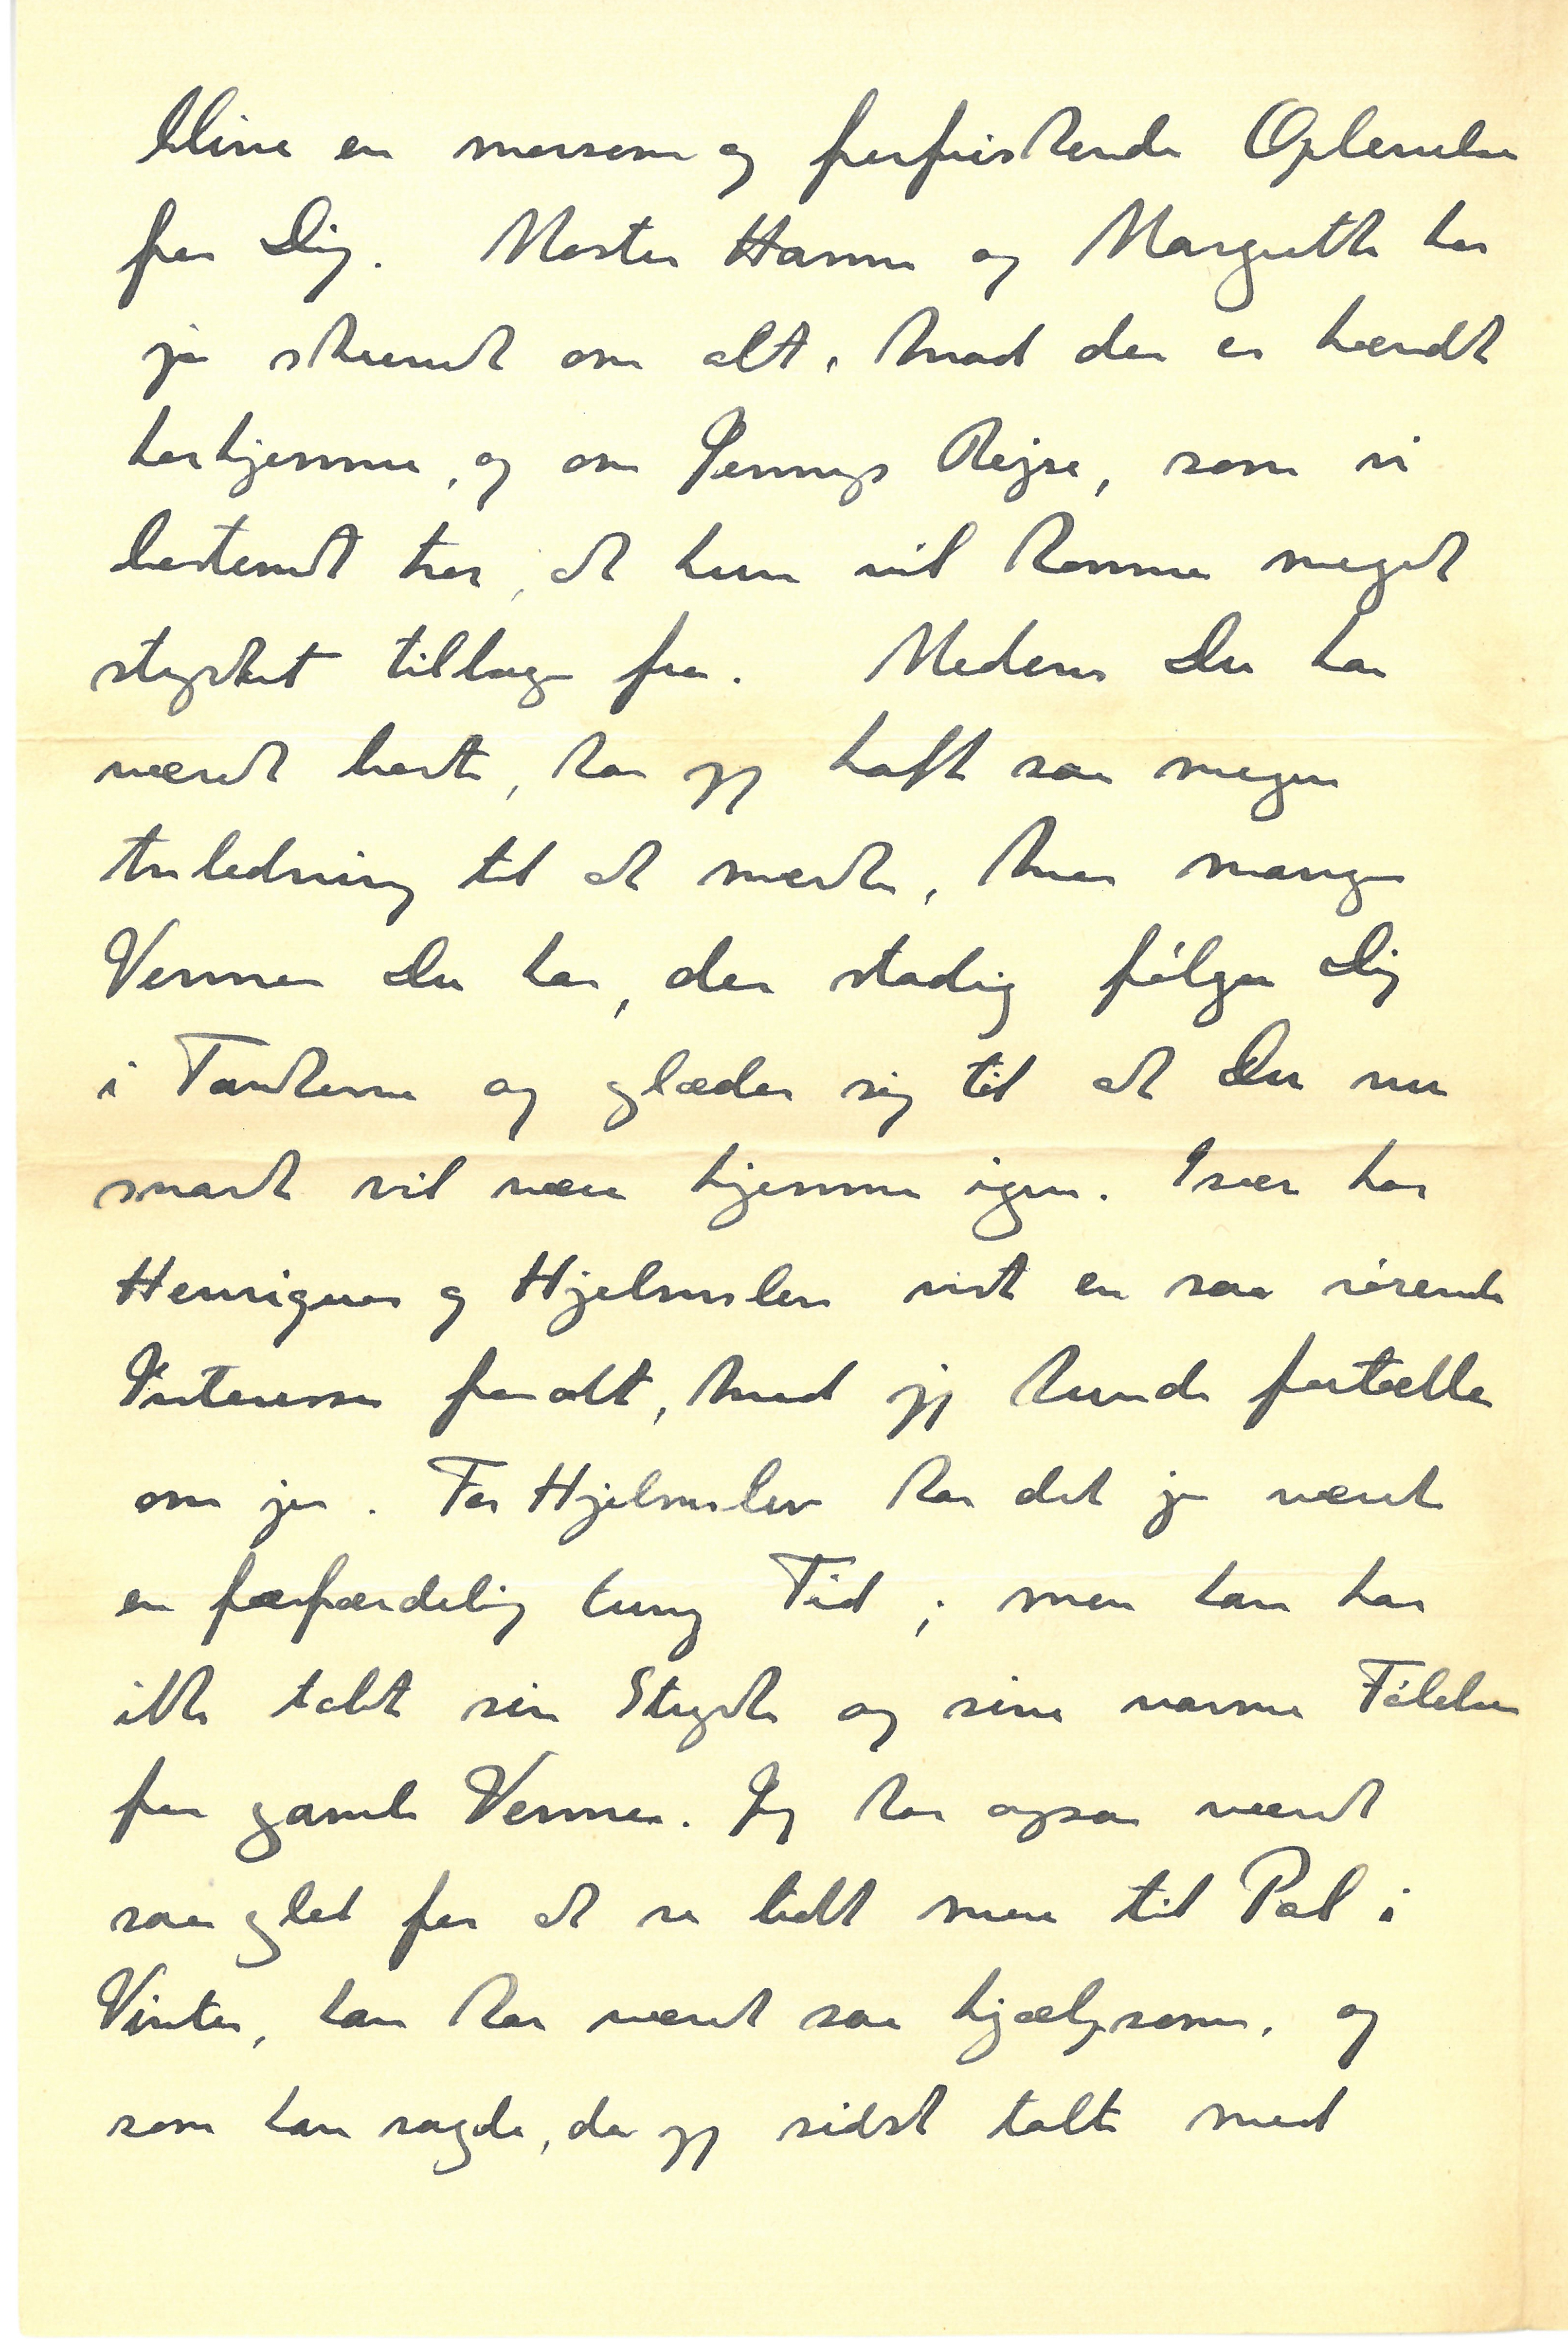 blive en morsom og forfriskende Oplevelse
for Dig. Moster Hanne og Margrethe har
jo skrevet om alt, hvad der er hændt
herhjemme, og om Jennys Rejse, som vi
bestemt tror, at hun vil komme meget
styrket tilbage fra. Medens Du har
været borte, har jeg haft saa megen
Anledning til at mærke, hvor mange
Venner Du har, der stadig følger Dig
i Tankerne og glæder sig til at Du nu
snart vil være hjemme igen. Især har
Henriques og Hjelmslev vist en saa rørende
Interesse for alt, hvad jeg kunde fortælle
om jer. For Hjelmslev har det jo været
en forfærdelig tung Tid; men han har
ikke tabt sin Styrke og sine varme Følelser
for gamle Venner. Jeg har ogsaa været
saa glad for at se lidt mere til Pal i
Vinter, han har været saa hjælpsom, og
som han sagde, da jeg sidst talte med